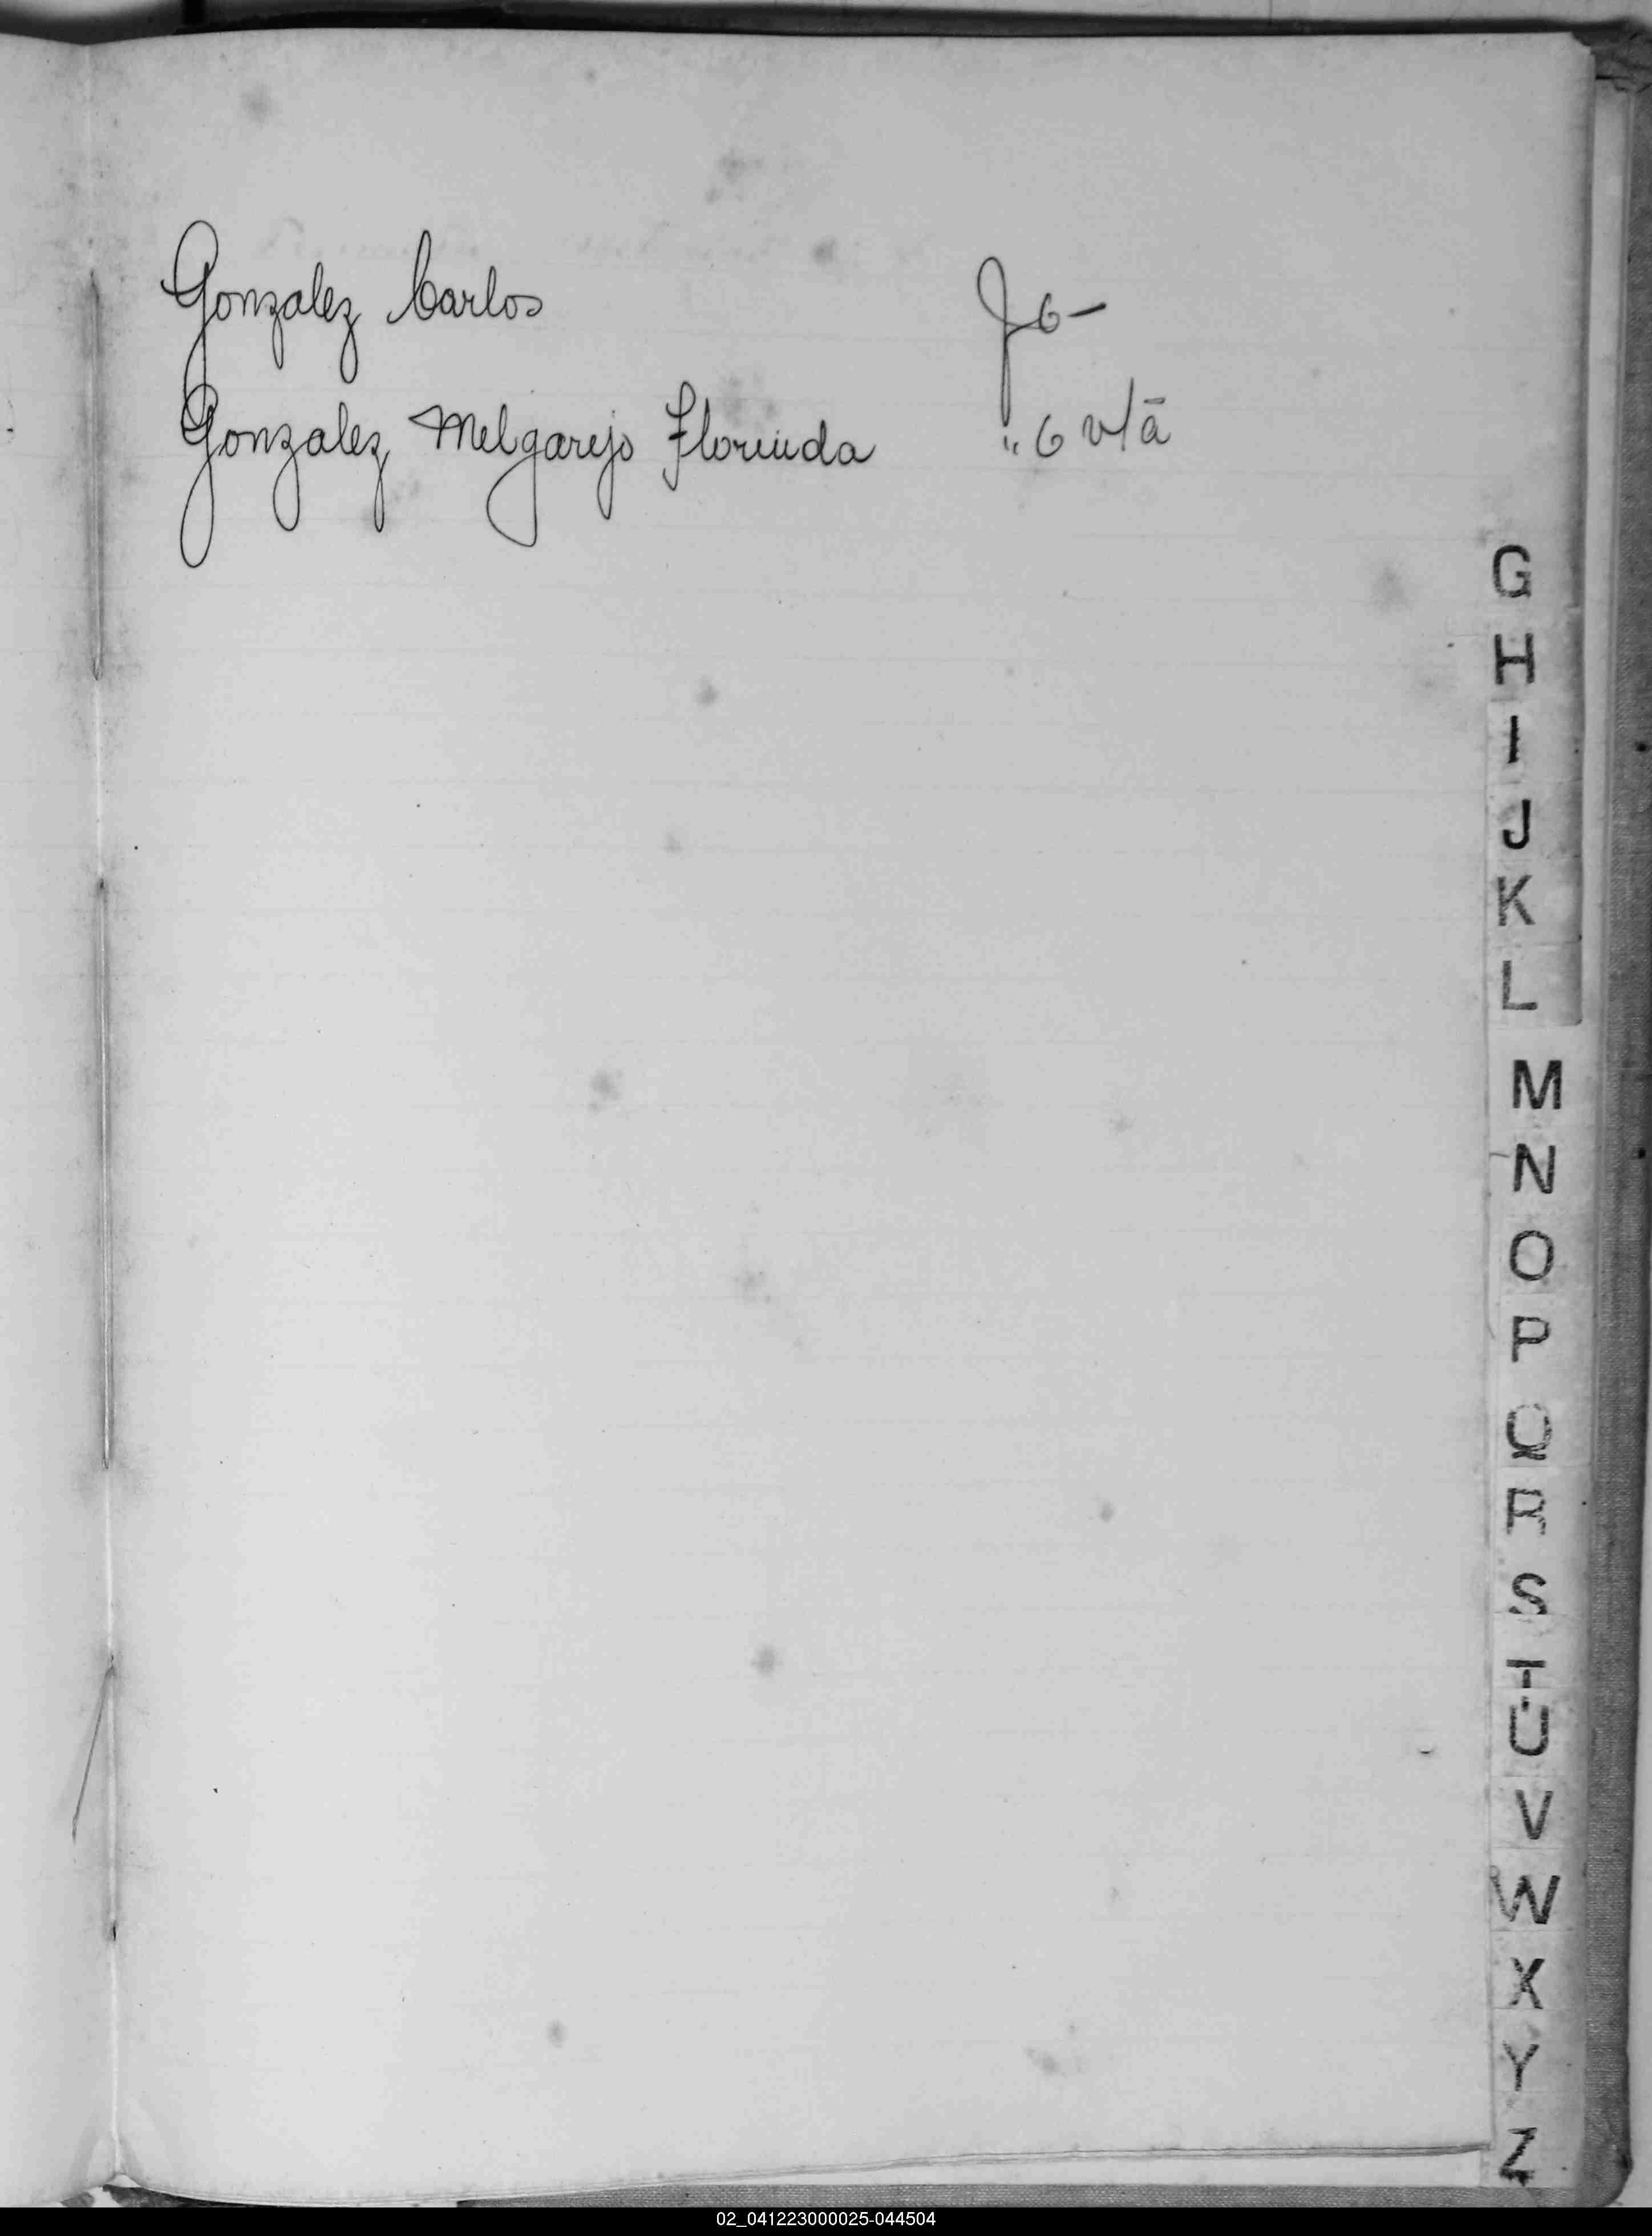 Gonzalez Carlos Fo 6-
Gonzalez Melgarejo Florinda " 6 vta
G
H
I
J
K
L
M
N
O
P
Q
R
S
T
U
V
W
X
Y
Z
02_041223000025-044504